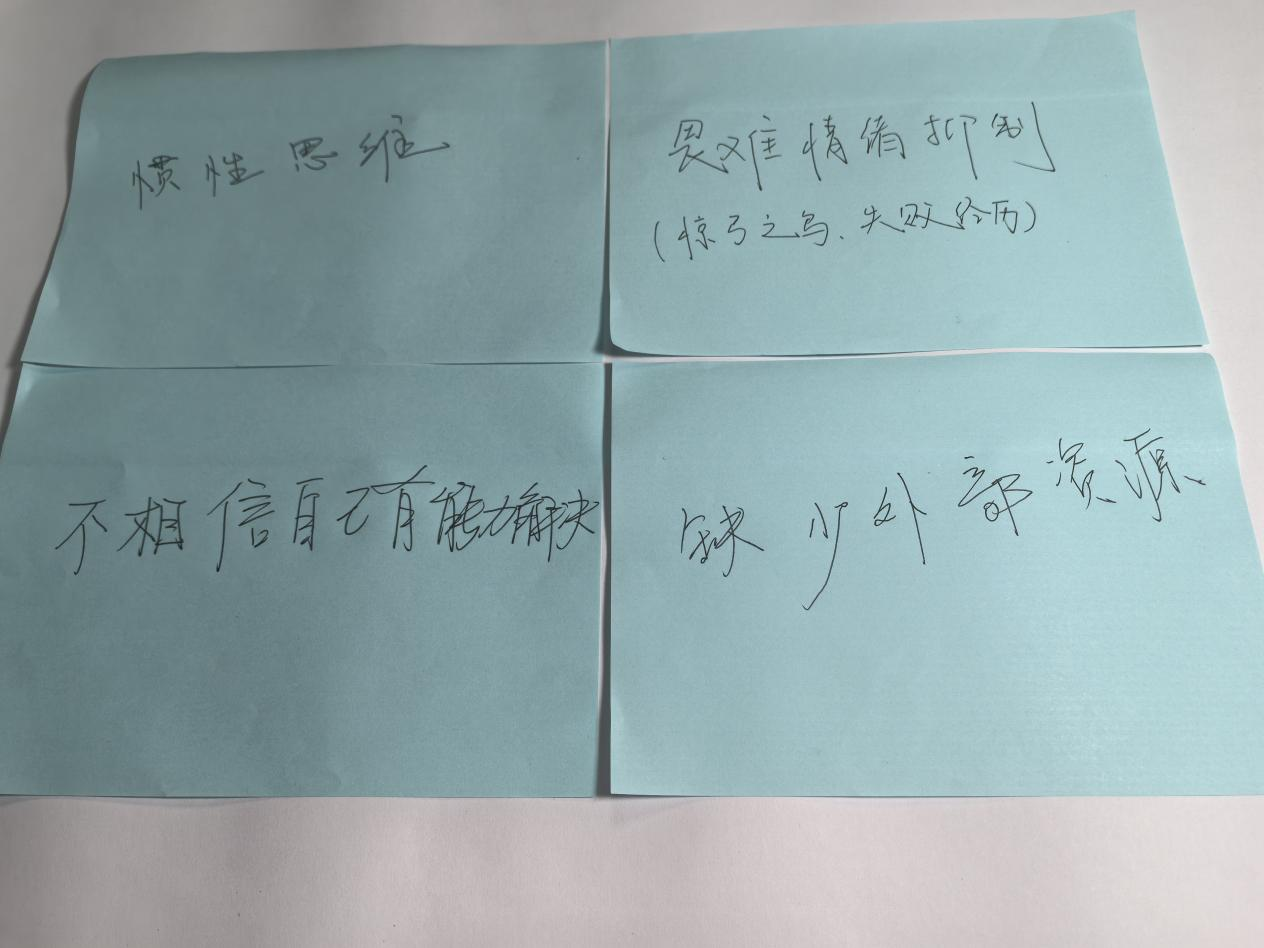 惯性思维
畏难情绪抑制
(惊弓之鸟、失败经历)
不相信自己有能力解决
缺少外部资源